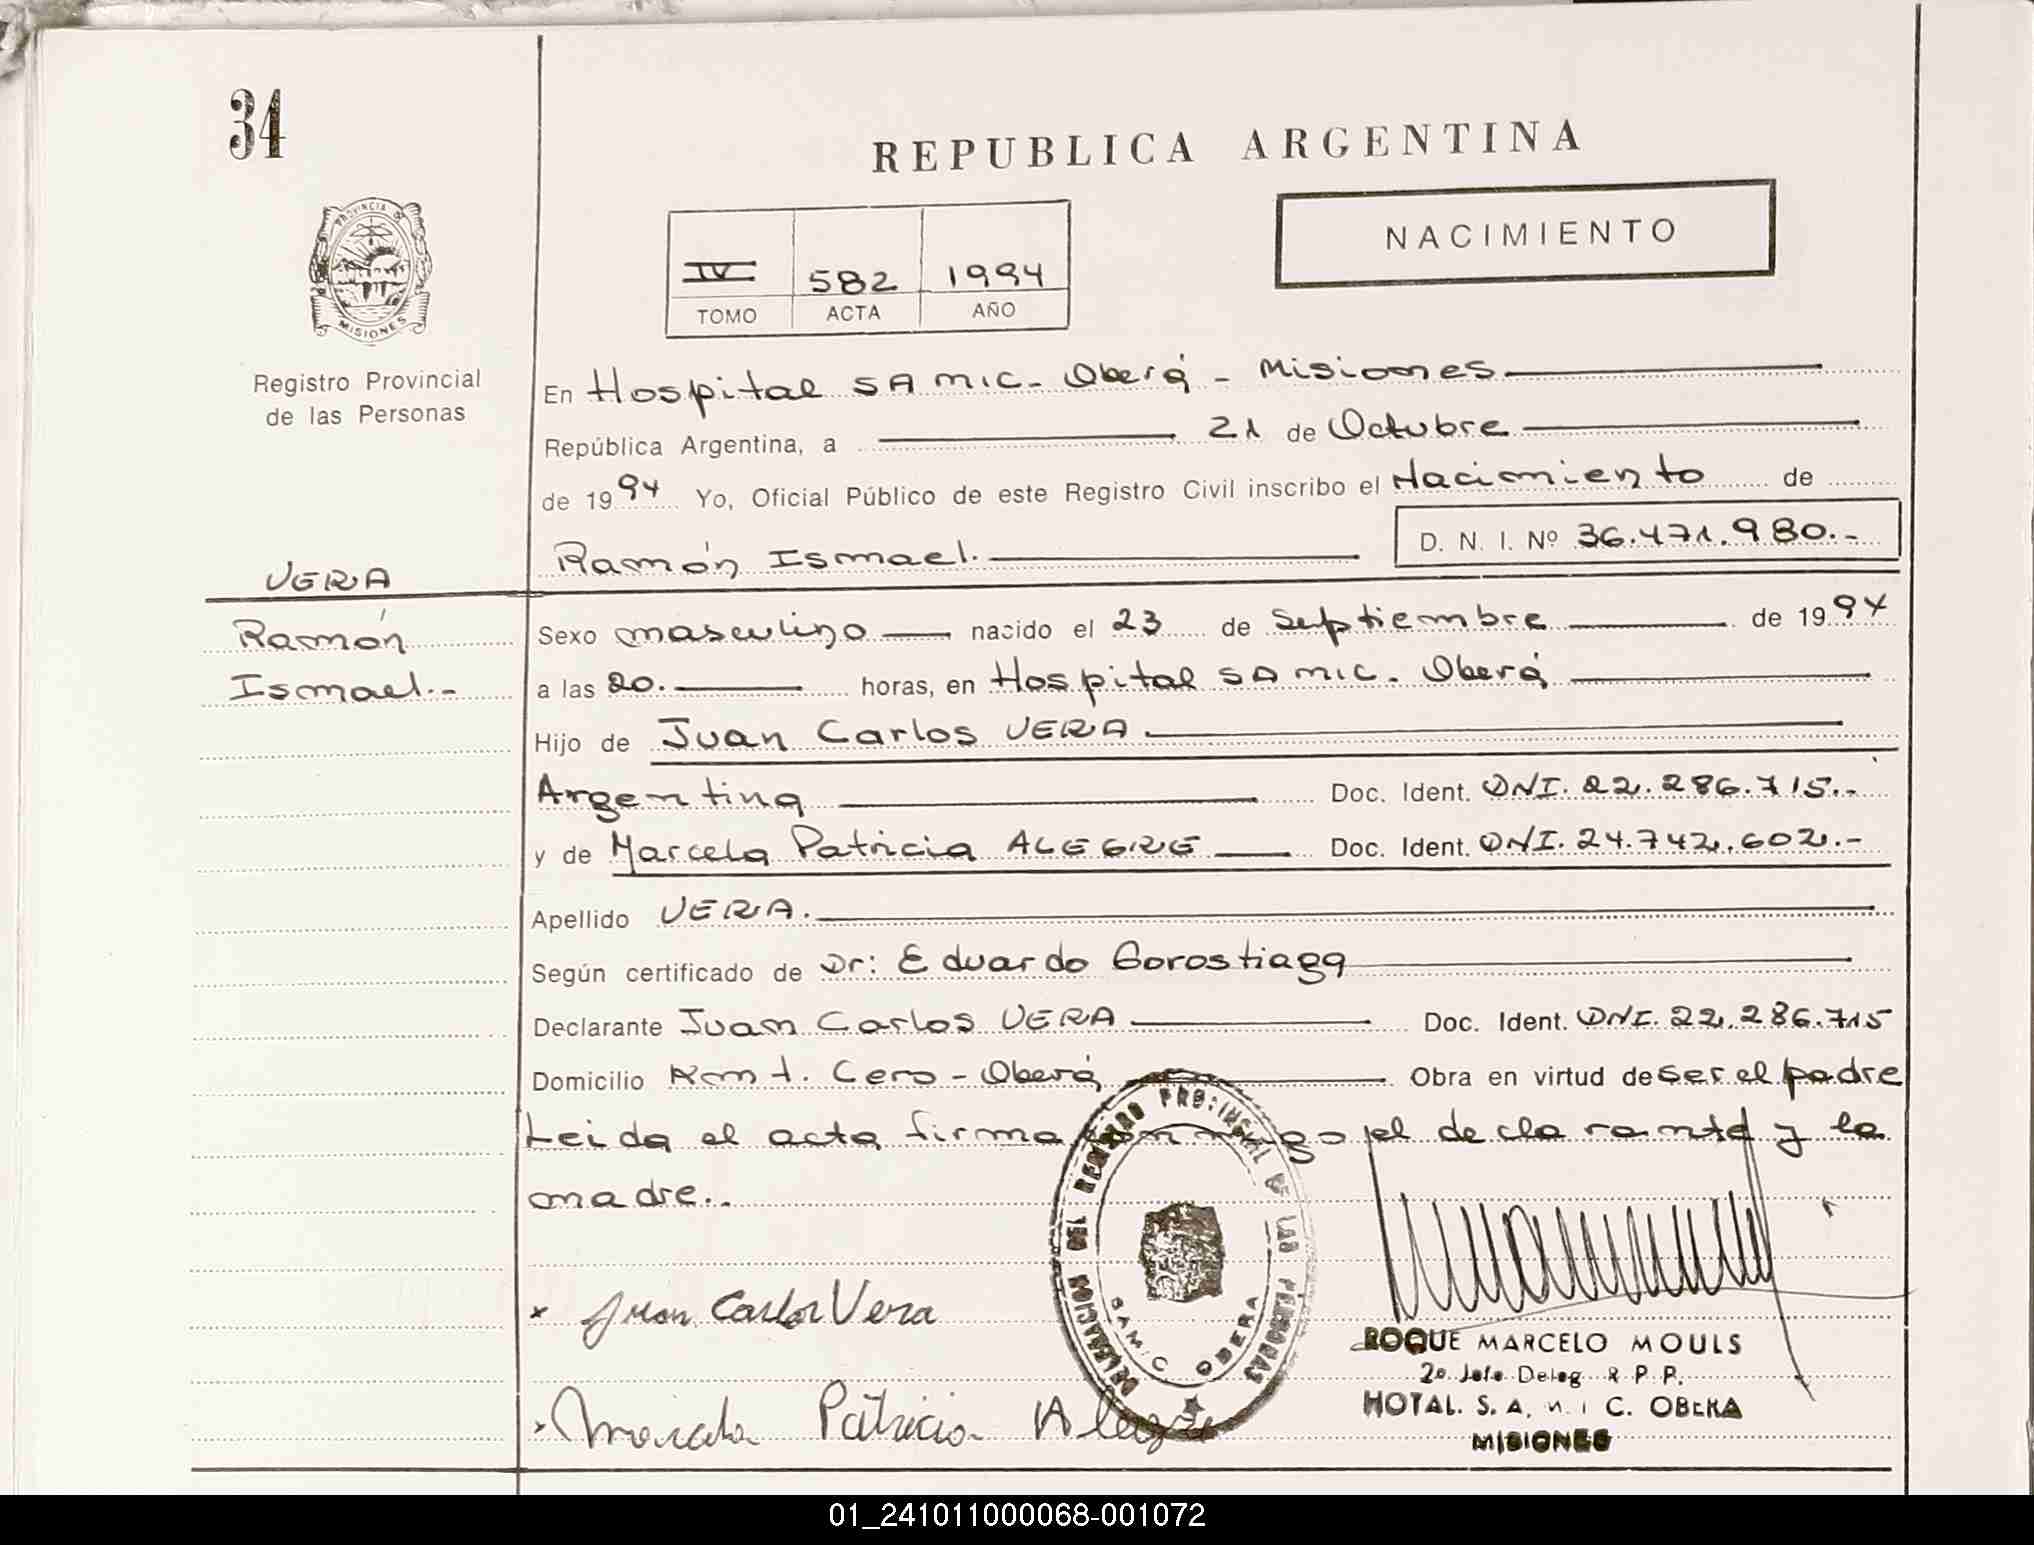 34
REPUBLICA ARGENTINA
NACIMIENTO
PROVINCIA DE
MISIONES
IV 582 1994
TOMO ACTA AÑO
Registro Provincial
de las Personas
En Hospital SAMIC. Oberá - Misiones
República Argentina, a 21 de Octubre
de 1994 Yo, Oficial Público de este Registro Civil inscribo el Nacimiento de
Ramón Ismael. D. N. I. Nº 36.471.980.-
VERA
Ramón
Ismael.-
Sexo masculino nacido el 23 de Septiembre de 1994
a las 20. horas, en Hospital SAMIC. Oberá
Hijo de Juan Carlos VERA
Argentina Doc. Ident. DNI. 22.286.715.-
y de Marcela Patricia ALEGRE Doc. Ident. DNI. 24.742.602.-
Apellido VERA.
Según certificado de Dr: Eduardo Gorostiaga
Declarante Juan Carlos VERA Doc. Ident. DNI. 22.286.715
Domicilio Cero - Oberá Obra en virtud de ser el padre
Leida el acta firma conmigo el declarante y la
madre..
DELEGACION DEL REGISTRO PROVINCIAL DE LAS PERSONAS
SAMIC OBERA
x Juan Carlos Vera
x Marcela Patricia Alegre
ROQUE MARCELO MOULS
2º Jefe Deleg R. P. P.
HOTAL. S. A. M. I C. OBERA
MISIONES
01_241011000068-001072